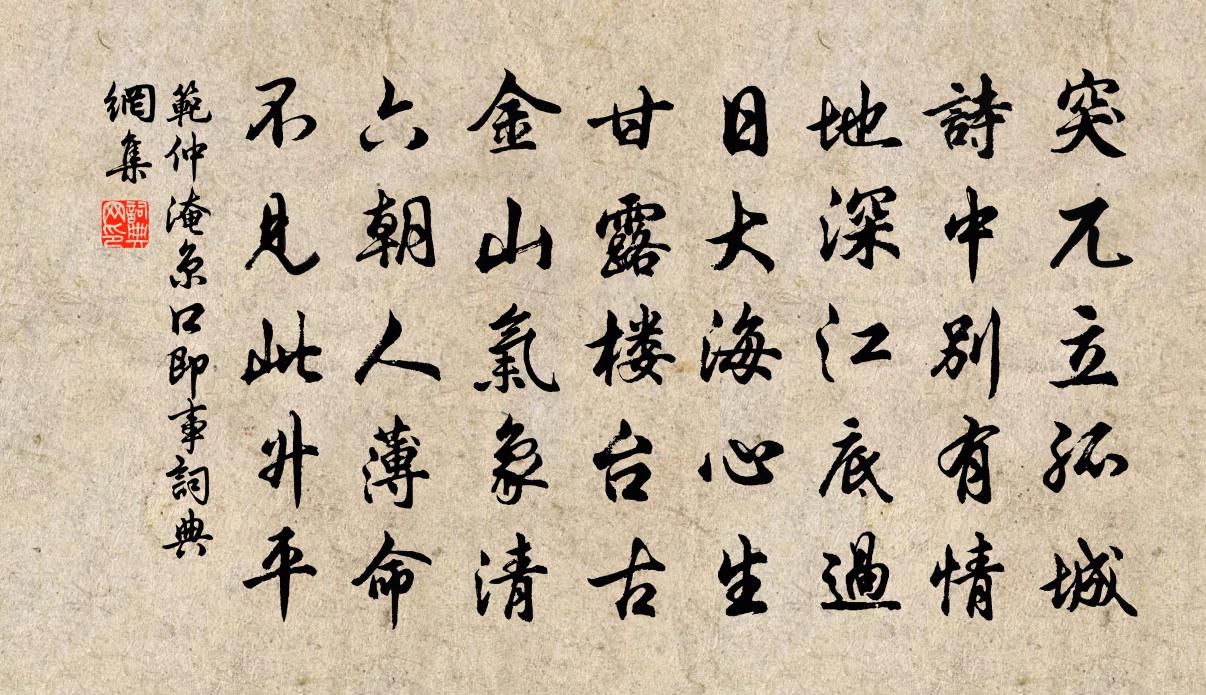 突兀立孤城
詩中別有情
地深江底過
日大海心生
甘露楼台古
金山氣象清
六朝人薄命
不見此升平
範仲淹京口即事詞典
網集
詞典
网印